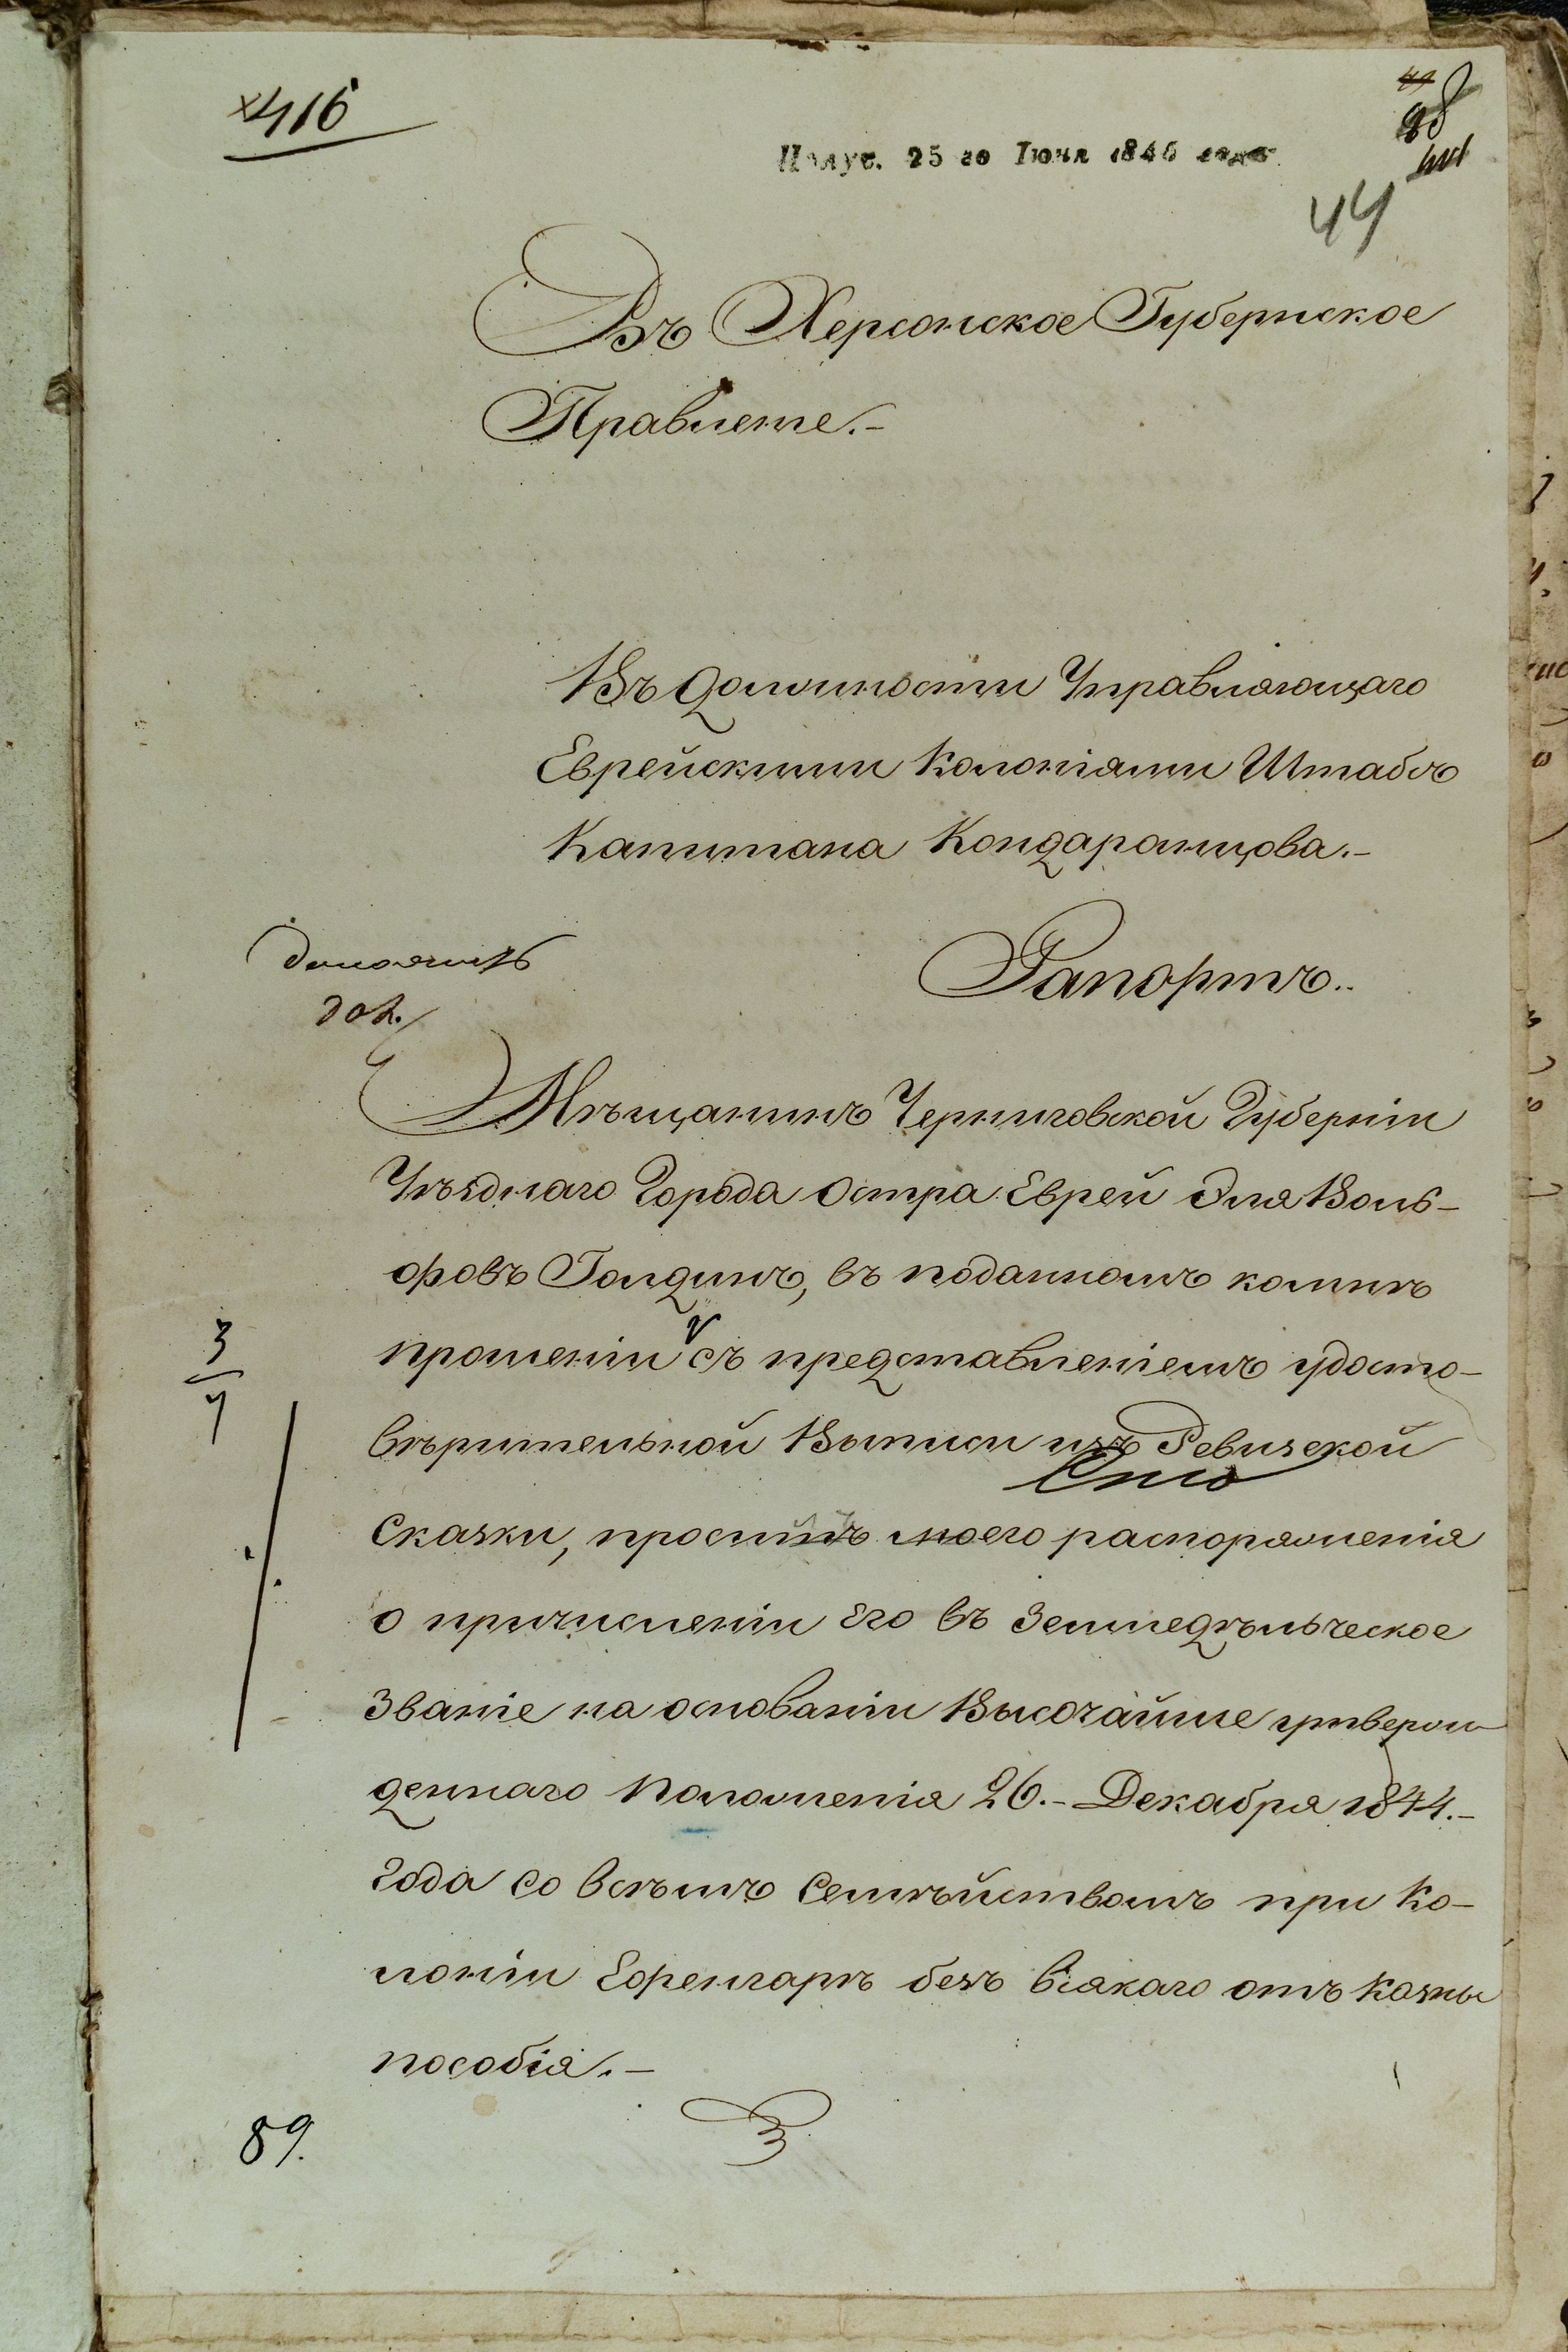 416
Получ. 25 го Июня 1846 года
44
Въ Херсонское Губернское
Правленіе.-
Въ должности Управляющаго
Еврейскими Колоніями Штабсъ
Капитана Кондаранцова.-
доложить
Рапортъ..
Мѣщанинъ Черниговской Губерніи
Уѣзднаго Города Остра Еврей Эля Воль-
фовъ Голдинъ, въ поданномъ комнѣ
прошеніи съ представленіемъ удосто-
3
4
вѣрительной Выписи изъ Ревизской
Сказки, проситъ моего распоряженія
о причисленіи Его въ Земледѣльческое
Званіе на основаніи Высочайше утверж
деннаго Положенія 26.- Декабря 1844.-
Года со всѣмъ Семѣйствомъ при Ко-
лоніи Ефенгарѣ безъ всякаго отъ Казны
пособія.-
89.